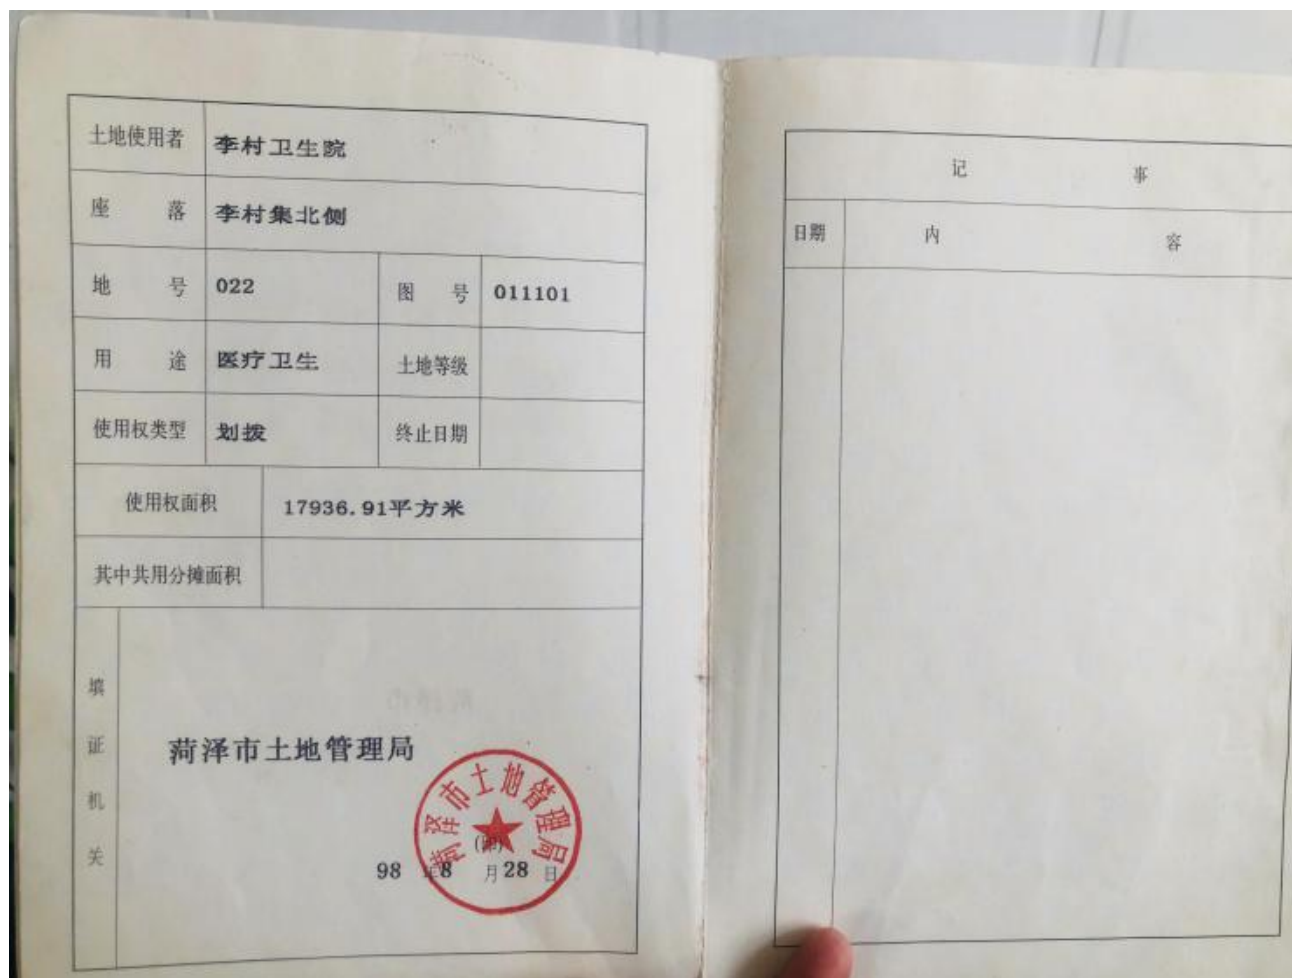 土地使用者 李村卫生院
座 落 李村集北侧
地 号 022 图 号 011101
用 途 医疗卫生 土地等级
使用权类型 划拨 终止日期
使用权面积 17936.91平方米
其中共用分摊面积
填证机关
菏泽市土地管理局
菏泽市土地管理局
(印)
98 年8 月28 日
记 事
日期 内 容